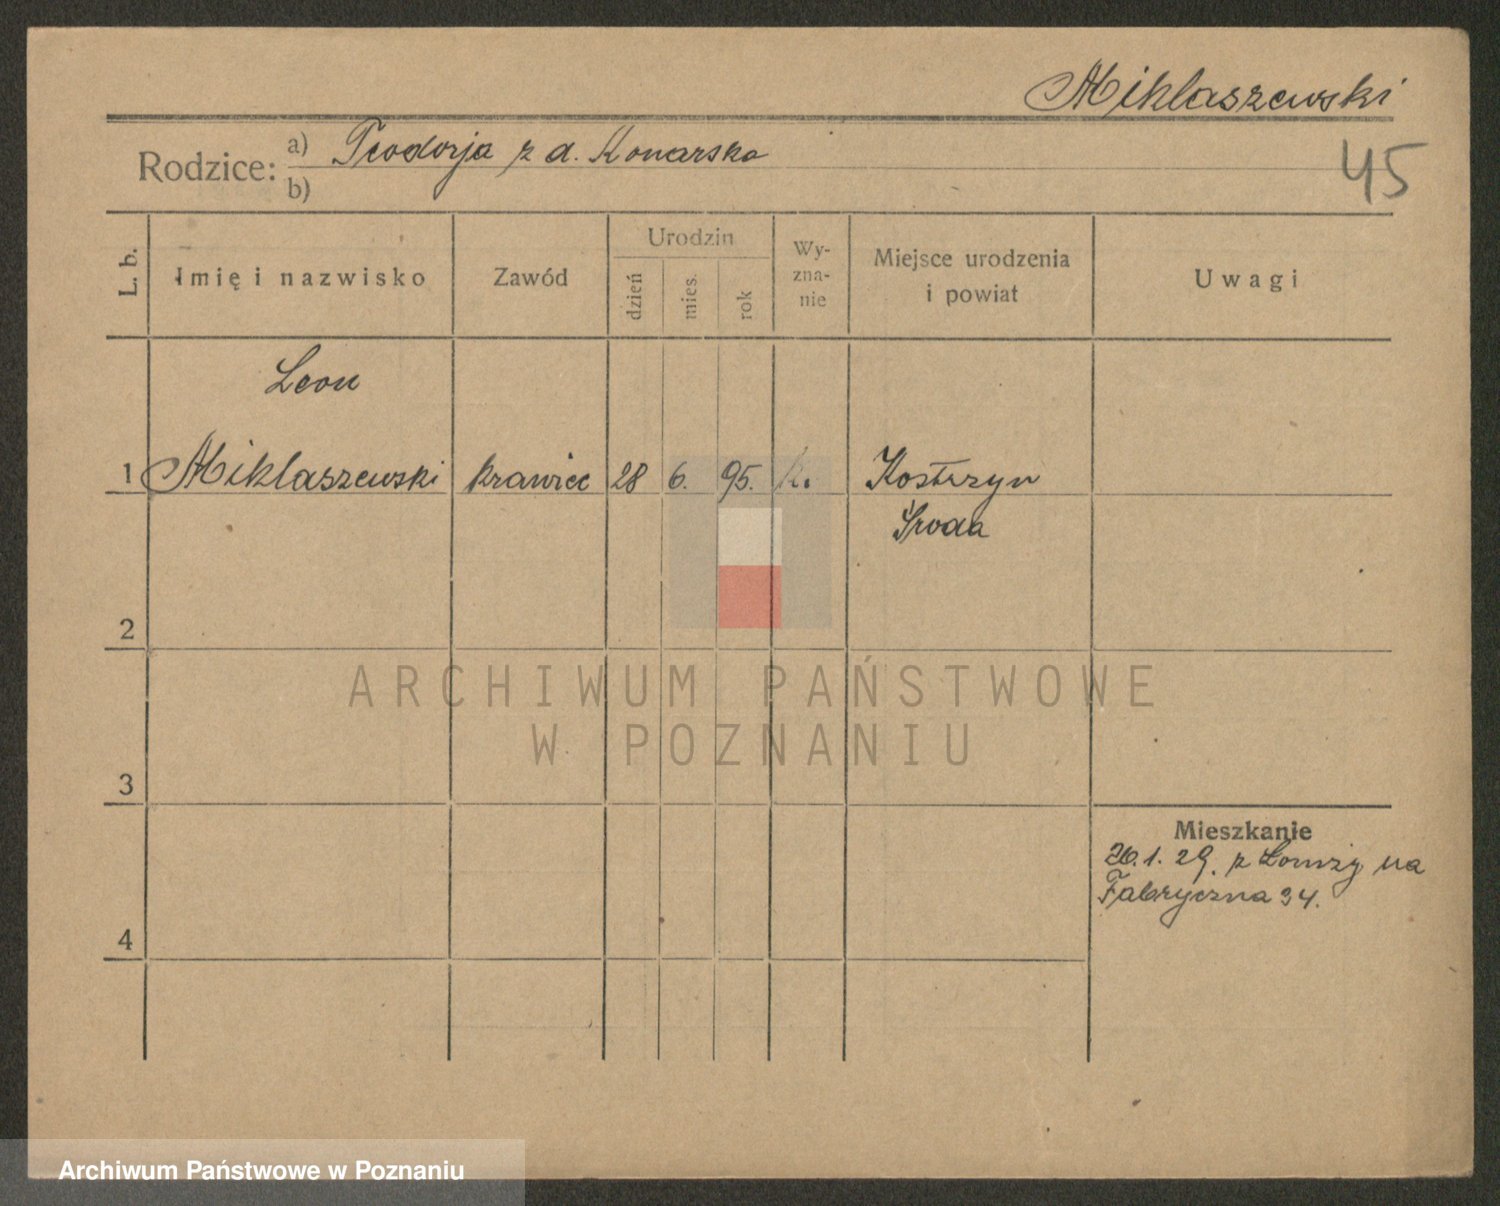 Miklaszewski
45
Rodzice: a) Teodorja z d. Konarska
b)
L. b.
Imię i nazwisko
Zawód
Urodzin
dzień
mies.
rok
Wy-
zna-
nie
Miejsce urodzenia
i powiat
Uwagi
Leon
1 Miklaszewski krawiec 28 6. 95. k. Kostrzyn
Środa
2
3
4
Mieszkanie
26.1.29. z Łomży na
Fabryczna 34.
ARCHIWUM PAŃSTWOWE
W POZNANIU
Archiwum Państwowe w Poznaniu